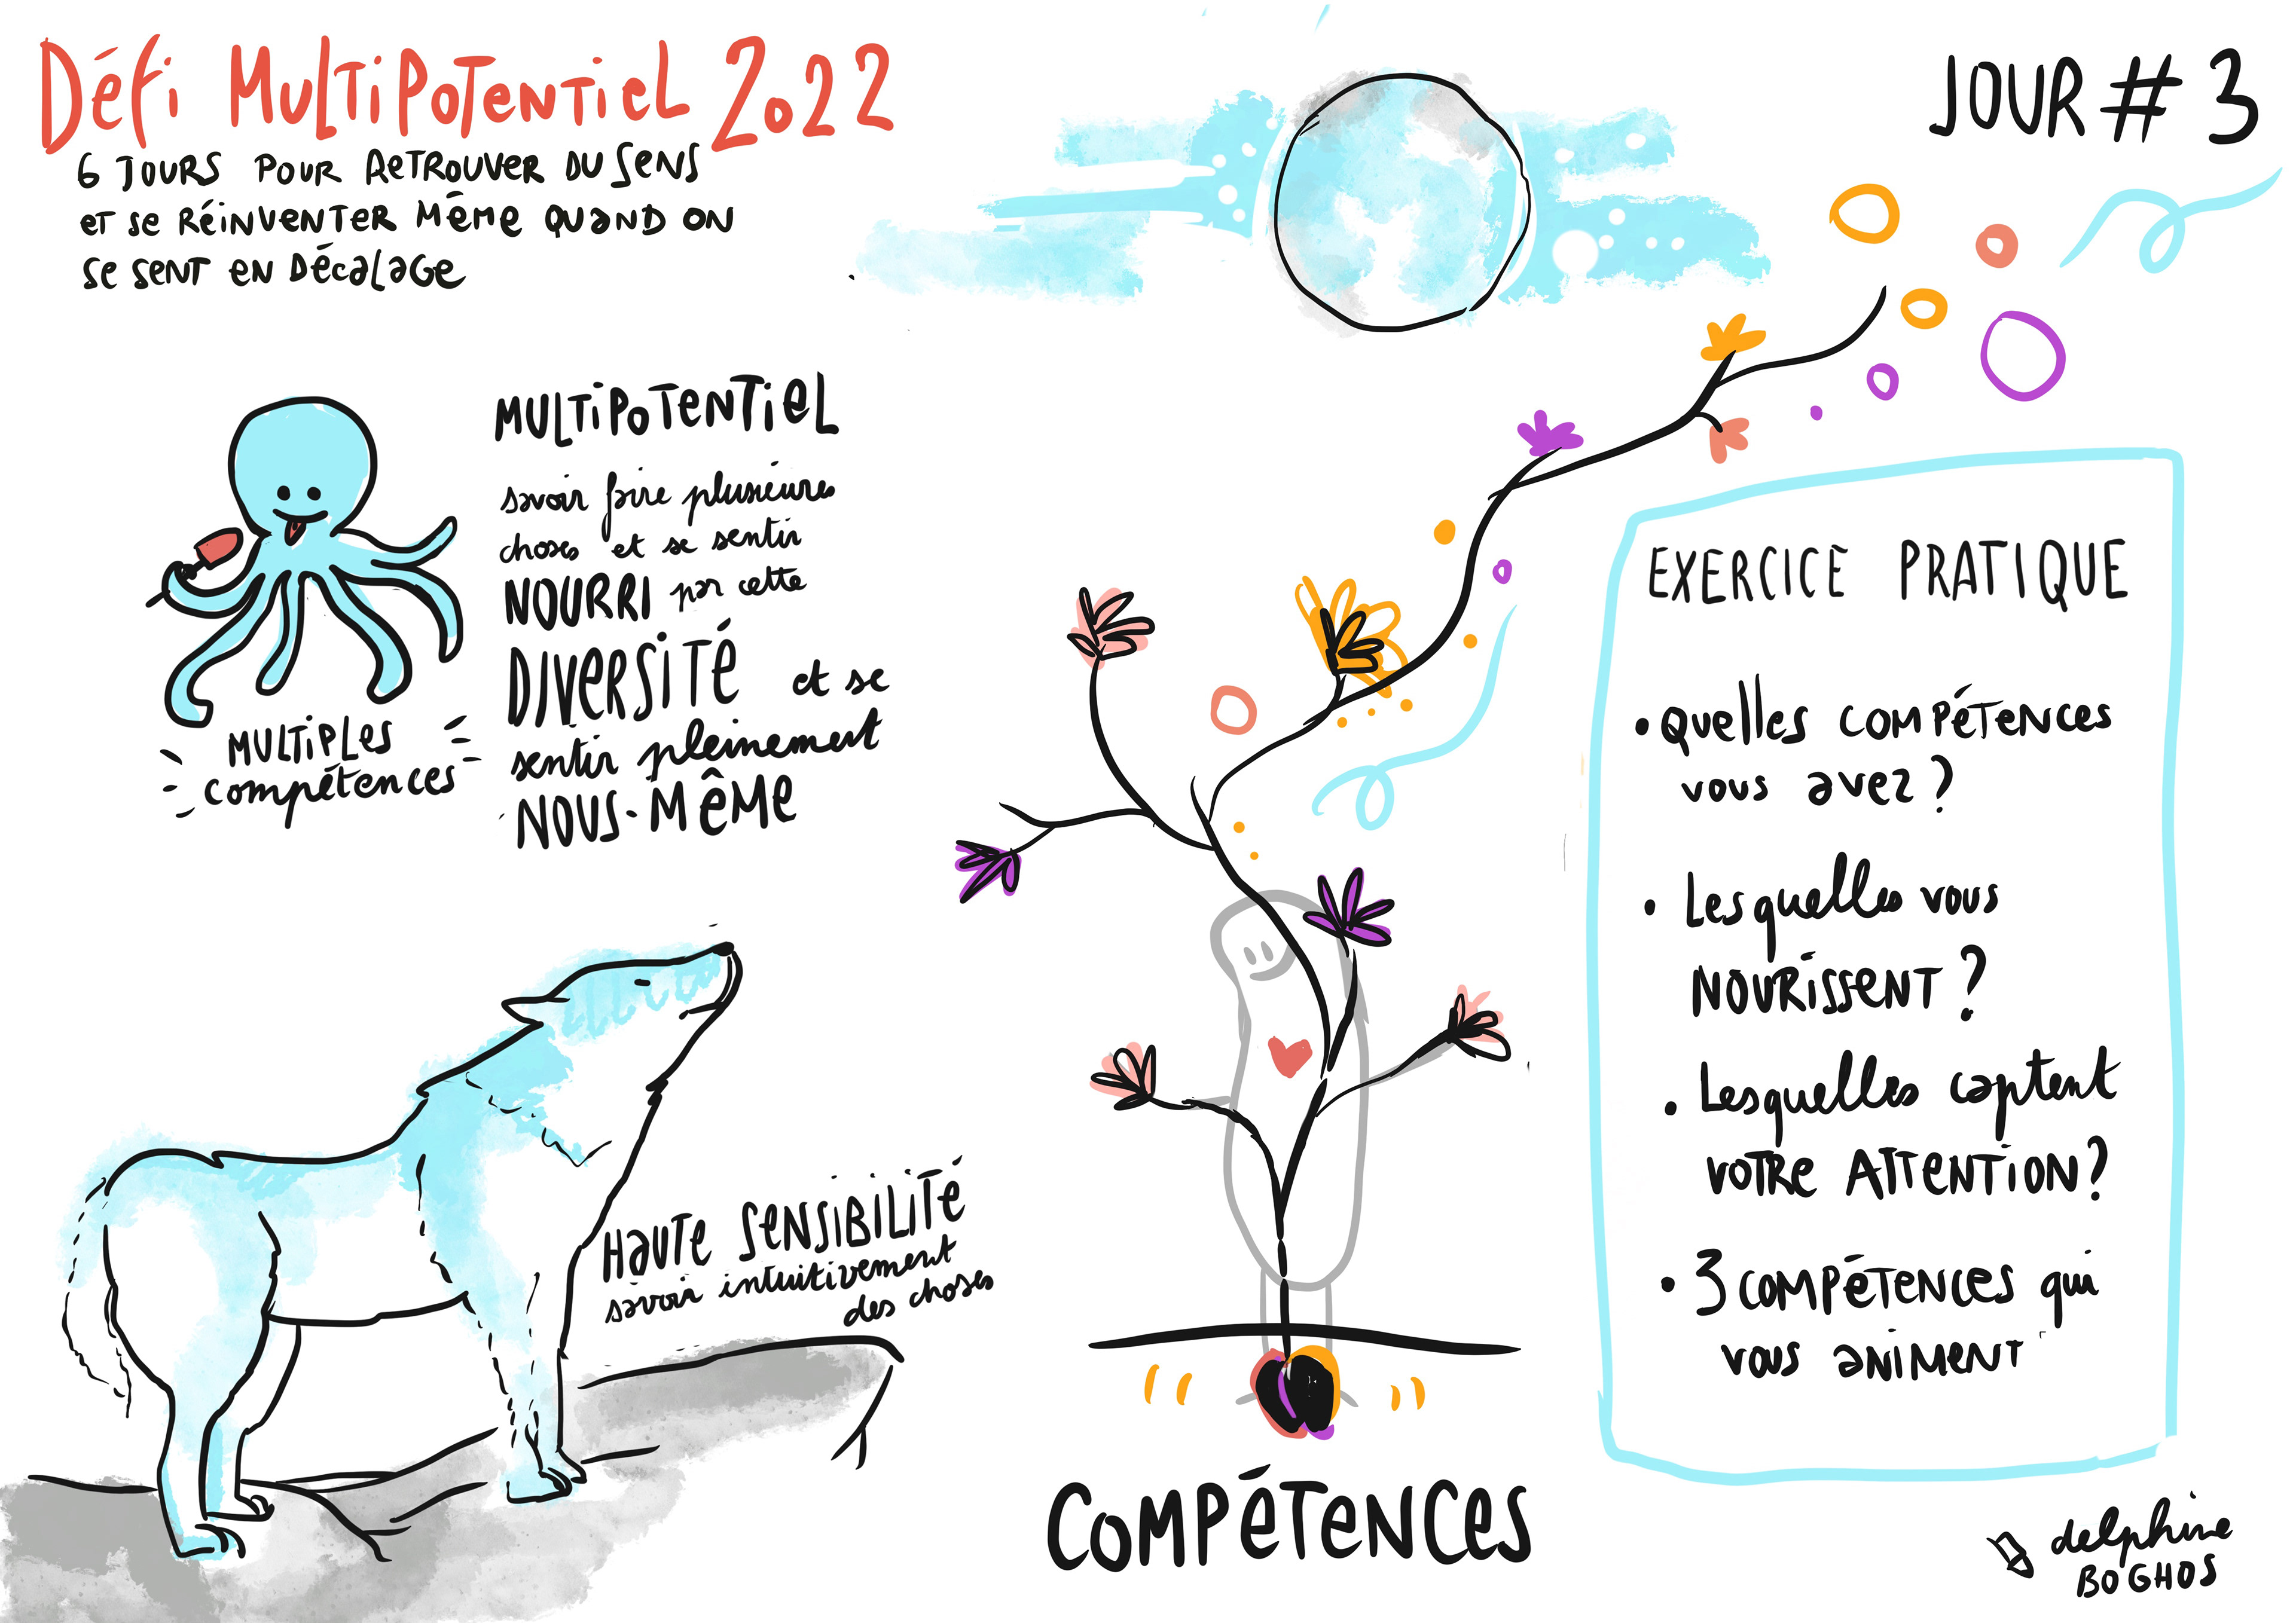 Défi MultiPotentiel 2022
6 jours pour retrouver du sens
et se réinventer même quand on
se sent en décalage
JOUR # 3
Multipotentiel
savoir faire plusieures
choses et se sentir
NOURRI par cette
DIVERSITÉ et se
sentir pleinement
NOUS-MÊME
MULTIPLES
compétences
HAUTE SENSIBILITÉ
savoir intuitivement
des choses
COMPÉTENCES
EXERCICE PRATIQUE
• Quelles compétences
vous avez ?
• Lesquelles vous
NOURISSENT ?
• Lesquelles captent
votre ATTENTION ?
• 3 compétences qui
vous animent
delphine
BOGHOS